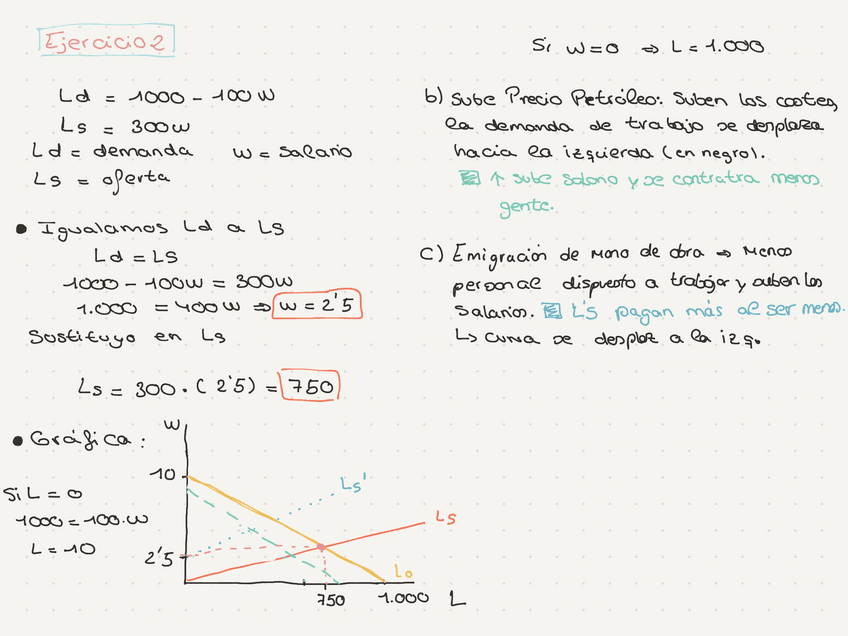 Ejercicio 2
Ld = 1000 - 100W
Ls = 300w
Ld = demanda w = salario
Ls = oferta
• Igualamos Ld a Ls
Ld = LS
1000 - 100W = 300W
1.000 = 400W ⇒ w = 2'5
Sustituyo en Ls
Ls = 300 · (2'5) = 750
• Gráfica:
Si L = 0
1000 = 100·W
L = 10
W
10
2'5
Ls'
Ls
LD
750
1.000
L
Si w = 0 ⇒ L = 1.000
b) Sube Precio Petróleo: Suben los costes,
la demanda de trabajo se desplaza
hacia la izquierda (en negro).
↑ sube salario y se contratra menos
gente.
c) Emigración de mano de obra ⇒ Menos
personal dispuesto a trabajar y suben los
Salarios. L's pagan más al ser menos.
↳ curva se desplaz a la izq.